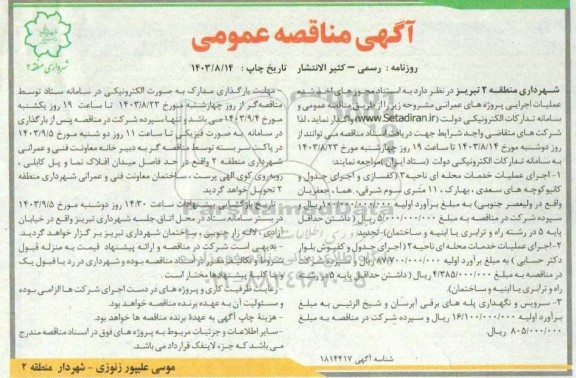 آگهی مناقصه عمومی
روزنامه : رسمی – کثیر الانتشار تاریخ چاپ : ۱۴۰۳/۸/۱۴
شهرداری منطقه ۲
شهرداری منطقه ۲ تبریز در نظر دارد به استناد مجوزهای
عملیات اجرایی پروژه های عمرانی مشروحه زیر را از طریق مناقصه عمومی و
سامانه تدارکات الکترونیکی دولت (www.Setadiran.ir) واگذار نماید، لذا
شرکت های متقاضی واجد شرایط جهت دریافت اسناد مناقصه می توانند از
روز دوشنبه مورخ ۱۴۰۳/۸/۱۴ تا ساعت ۱۹ روز چهارشنبه مورخ ۱۴۰۳/۸/۲۳
به سامانه تدارکات الکترونیکی دولت (ستاد ایران) مراجعه نمایند:
۱- اجرای عملیات خدمات محله ای ناحیه ۳ (کفسازی و اجرای جدول و
کانیوکوچه های سعدی ، بهارک ، ۱۱ متری سوم شرقی، هما، جعفریان
واقع در ولیعصر جنوبی) به مبلغ برآورد اولیه ریال و
سپرده شرکت در مناقصه به مبلغ ۵/۰۰۰/۰۰۰/۰۰۰ ریال (داشتن حداقل
پایه ۵ در رشته راه و ترابری یا ابنیه و ساختمان)- تجدید
۲- اجرای عملیات خدمات محله ای ناحیه ۲ (اجرای جدول و کفپوش بلوار
دکتر حسابی ) به مبلغ برآورد اولیه ۸۷/۷۰۰/۰۰۰/۰۰۰ ریال و سپرده شرکت
در مناقصه به مبلغ ۴/۳۸۵/۰۰۰/۰۰۰ ریال ( داشتن حداقل پایه ۵ در رشته
راه و ترابری یا ابنیه و ساختمان).
۳- سرویس و نگهداری پله های برقی آبرسان و شیخ الرئیس به مبلغ
برآورد اولیه ۱۶/۱۰۰/۰۰۰/۰۰۰ ریال و سپرده شرکت در مناقصه به مبلغ
۸۰۵/۰۰۰/۰۰۰ ریال
- مهلت بارگذاری مدارک به صورت الکترونیکی در سامانه ستاد توسط
مناقصه گر از روز چهارشنبه مورخ ۱۴۰۳/۸/۲۳ تا ساعت ۱۹ روز یکشنبه
مورخ ۱۴۰۳/۹/۴ می باشد و تنها سپرده شرکت در مناقصه پس از بارگذاری
در سامانه به صورت فیزیکی تا ساعت ۱۱ روز دو شنبه مورخ ۱۴۰۳/۹/۵
در پاکت سربسته توسط مناقصه گر به دبیر خانه معاونت فنی و عمرانی
شهرداری منطقه ۲ واقع در حد فاصل میدان افلاک نما و پل کابلی ،
روبه روی کوی الهی پرست ، ساختمان معاونت فنی و عمرانی شهرداری منطقه
۲ تحویل خواهد گردید.
- تاریخ بازگشایی پیشنهادات ساعت ۱۴:۳۰ روز دوشنبه مورخ ۱۴۰۳/۹/۵
در بستر سامانه ستاد در محل اتاق جلسه شهرداری تبریز واقع در خیابان
ارتش ، ساختمان شهرداری تبریز بر گزار خواهد گردید.
- بدیهی است شرکت در مناقصه و ارائه پیشنهاد قیمت به منزله قبول
شروط و تکالیف مقرر در اسناد مناقصه بوده و شهرداری در رد یا قبول یک
و یا کلیه پیشنهادها مختار است .
- رعایت ظرفیت کاری و پروژه های در دست اجرای شرکت ها الزامی بوده
و مسئولیت آن به عهده برنده مناقصه خواهد بود.
- هزینه چاپ آگهی به عهده برنده مناقصه ها خواهد بود.
- سایر اطلاعات و جزئیات مربوط به پروژه های فوق در اسناد مناقصه مندرج
می باشد که جزء لاینفک قرارداد می باشد.
شناسه آگهی ۱۸۱۴۴۱۷
موسی علیپور زنوزی - شهردار منطقه ۲